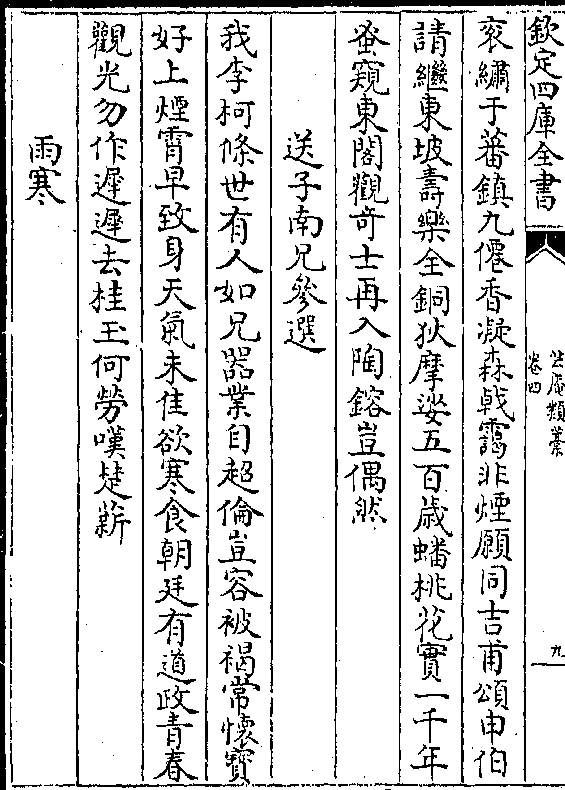 欽定四庫全書
卷四
九
衮繡于蕃鎮九僊香凝森㦸靄非煙願同吉甫頌申伯
請繼東坡壽樂全銅狄摩娑五百歳蟠桃花實一千年
蚤窺東閣觀竒士再入陶鎔豈偶然
送子南兄參選
我李柯條世有人如兄器業自超倫豈容被褐常懷寳
好上煙霄早致身天氣未佳欲寒食朝廷有道政青春
觀光勿作遲遲去桂玉何勞嘆楚薪
雨寒